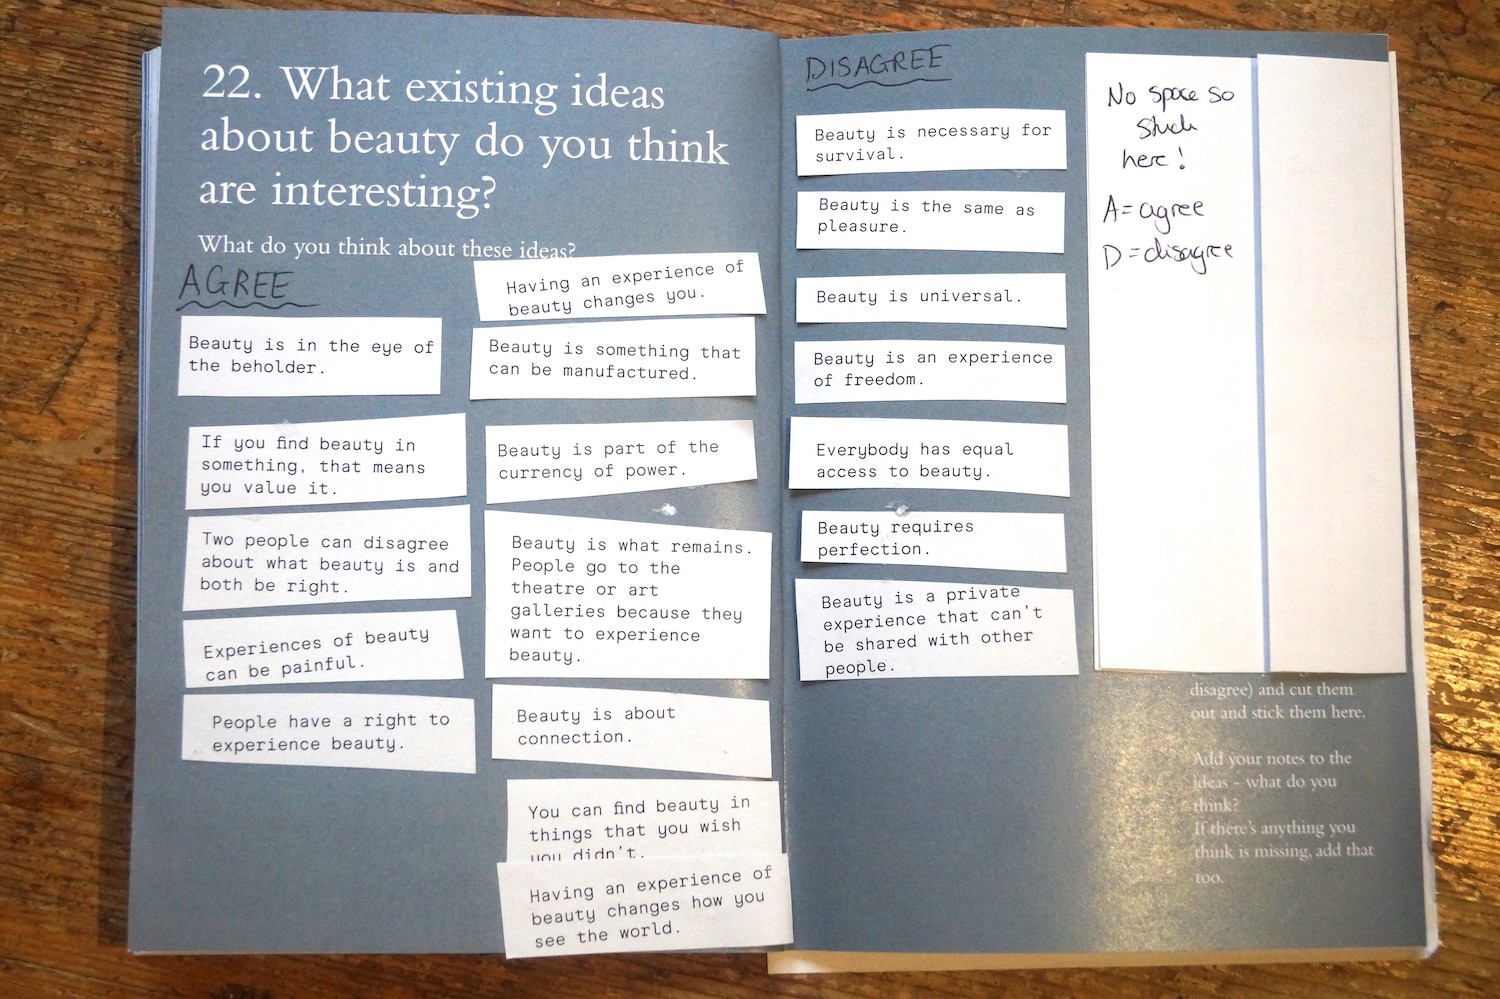 22. What existing ideas
about beauty do you think
are interesting?
What do you think about these ideas?
AGREE
Beauty is in the eye of
the beholder.
If you find beauty in
something, that means
you value it.
Two people can disagree
about what beauty is and
both be right.
Experiences of beauty
can be painful.
People have a right to
experience beauty.
Having an experience of
beauty changes you.
Beauty is something that
can be manufactured.
Beauty is part of the
currency of power.
Beauty is what remains.
People go to the
theatre or art
galleries because they
want to experience
beauty.
Beauty is about
connection.
You can find beauty in
things that you wish
you didn't.
Having an experience of
beauty changes how you
see the world.
DISAGREE
Beauty is necessary for
survival.
Beauty is the same as
pleasure.
Beauty is universal.
Beauty is an experience
of freedom.
Everybody has equal
access to beauty.
Beauty requires
perfection.
Beauty is a private
experience that can't
be shared with other
people.
No space so
stuck
here!
A = agree
D = disagree
disagree) and cut them
out and stick them here.
Add your notes to the
ideas – what do you
think?
If there's anything you
think is missing, add that
too.